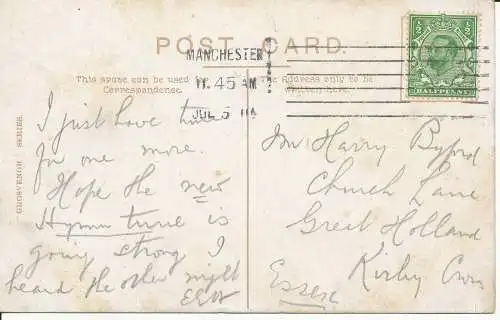 POST CARD.
MANCHESTER
11.45 AM
JUL 5
This space can be used for
Correspondence.
The Address only to be
written here.
GROSVENOR SERIES.
HALFPENNY
I just have time
for one more.
Hope the new
Hymn tune is
going strong I
heard the other night
Mr Harry Byford
Church Lane
Great Holland
Kirby Cross
Essex